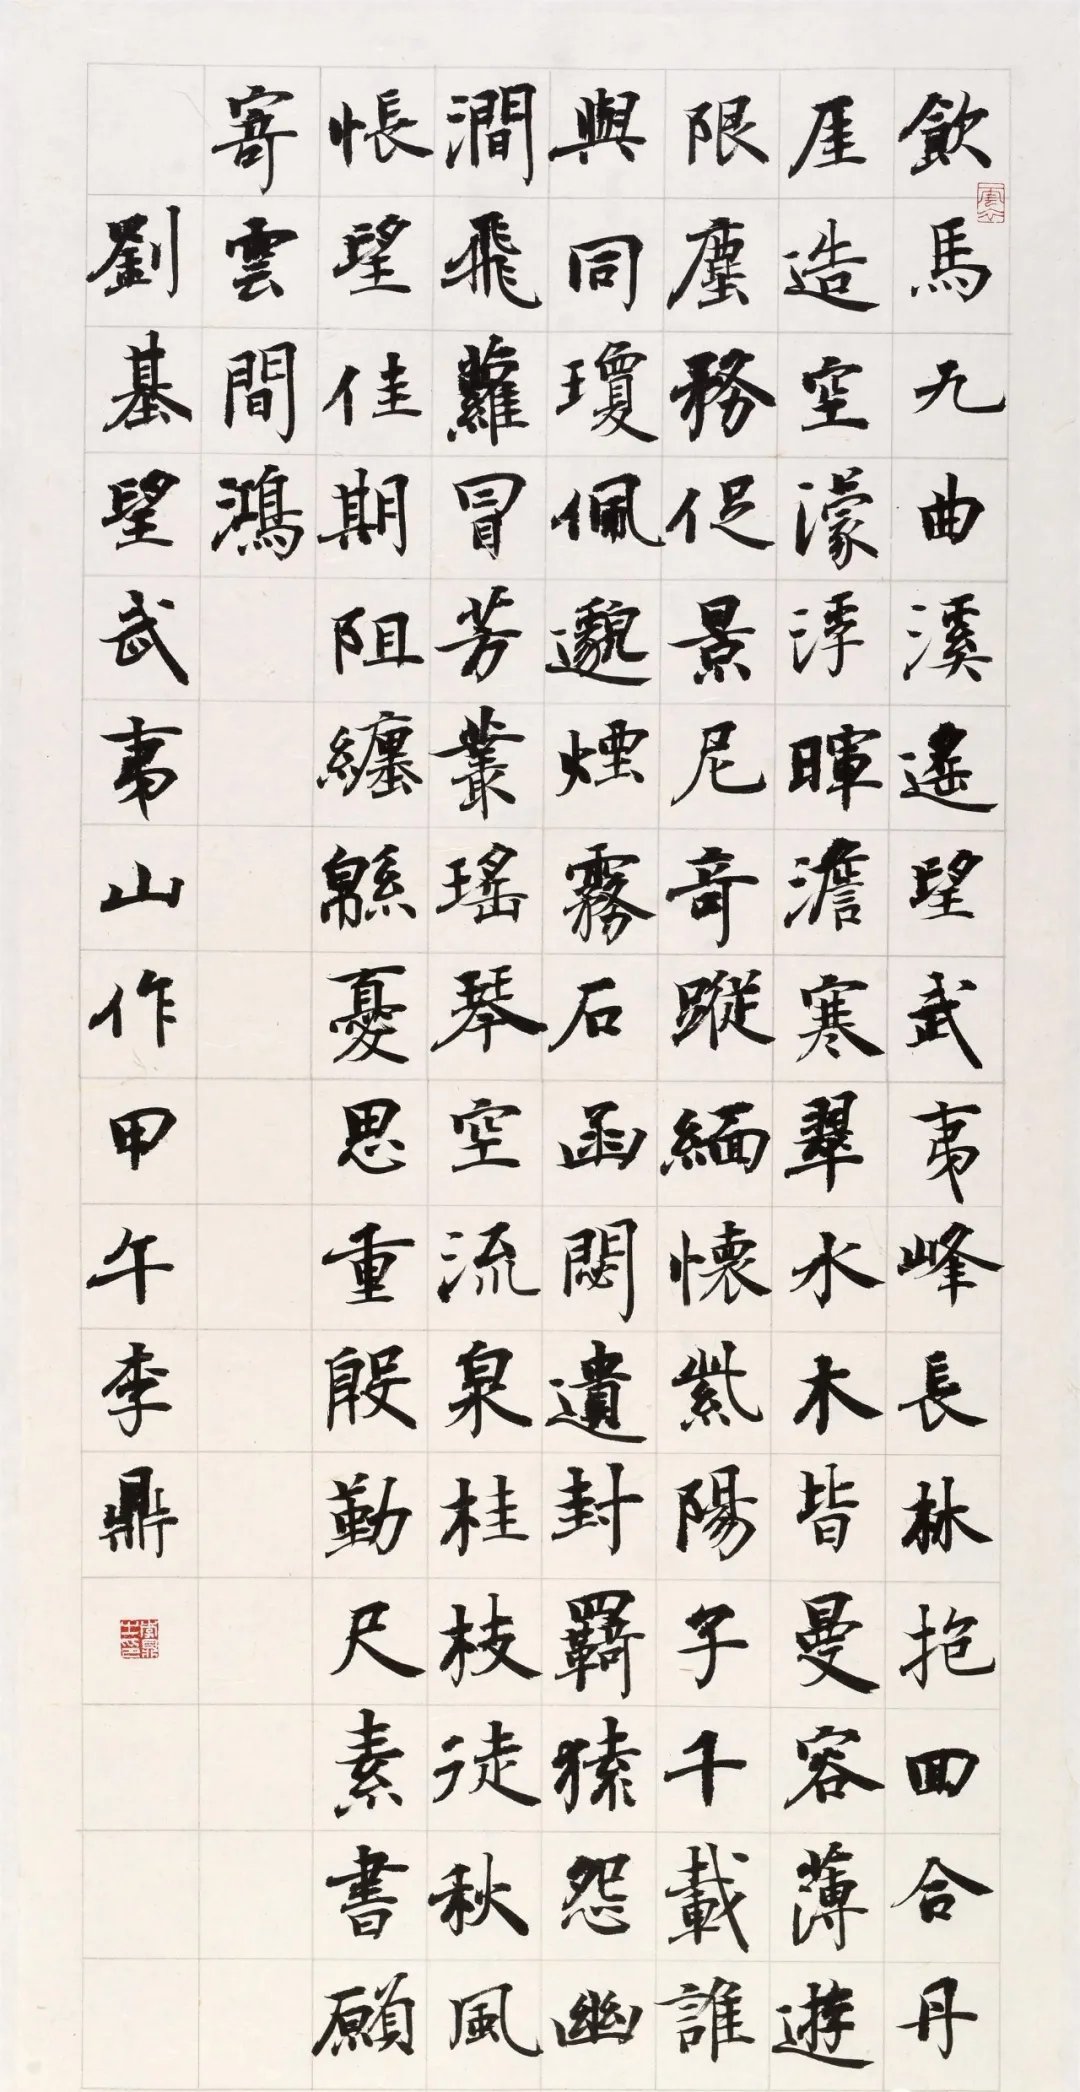 飲馬九曲溪遙望武夷峰長林抱回合丹
厓造空濛浮暉澹寒翠水木皆曼容薄遊
限塵務促景尼奇蹤緬懷紫陽子千載誰
與同瓊佩邈煙霧石函閟遺封羈猿怨幽
澗飛蘿冒芳叢瑤琴空流泉桂枝徒秋風
悵望佳期阻纏綿憂思重殷勤尺素書願
寄雲間鴻
劉基望武夷山作甲午李鼎